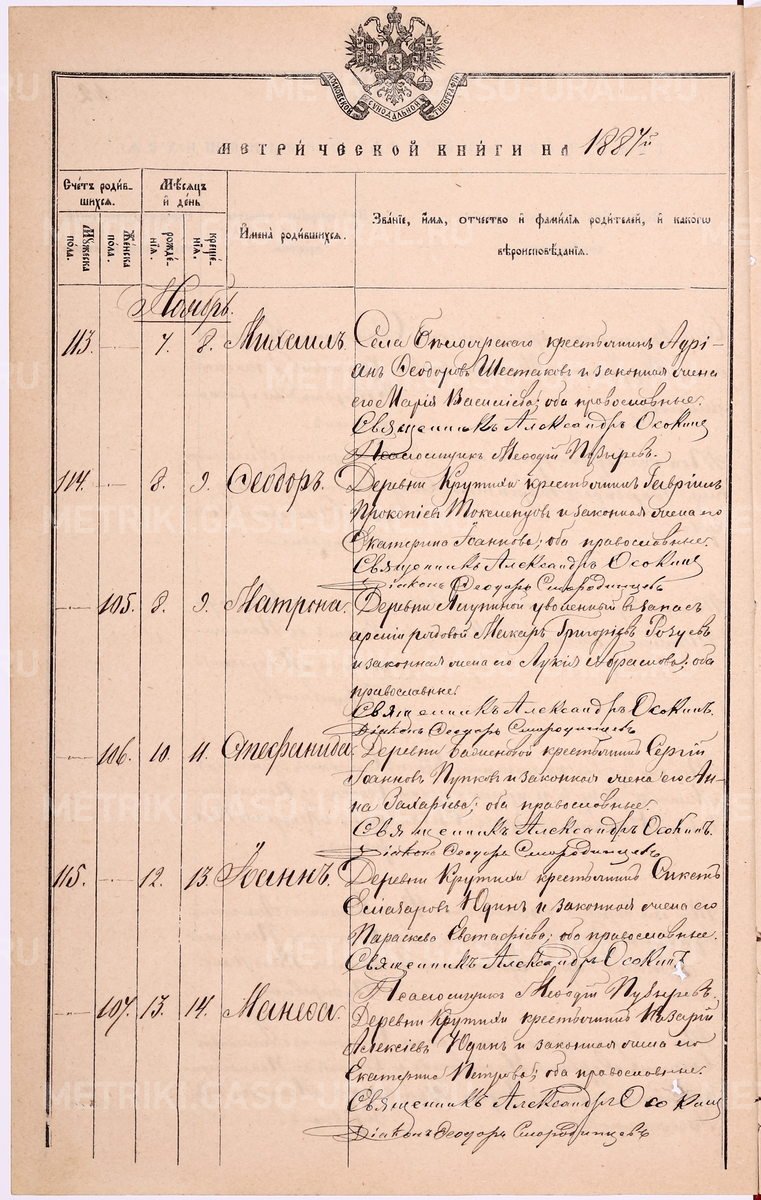 МОСКОВСКОЙ СѴНОДАЛЬНОЙ ТИПОГРАФІИ
МЕТРИ́ЧЕСКОЙ КНИ́ГИ НА 1887й
Сче́тъ роди́в-
шихся.
Мѣ́сяцъ
и҆ де́нь
И҆мена̀ роди́вшихся.
Зва́нїе, и҆́мя, ѻ҆́тчество и҆ фами́лїя роди́телей, и҆ како́гѡ
вѣроисповѣ́данїя.
Мꙋ́жеска
по́ла.
Же́нска
по́ла.
рожде́-
нїя.
креще́-
нїя.
Ноябрь.
113. 7. 8. Михаилъ. Села Бѣлоярскаго крестьянинъ Адрі-
анъ Ѳеодоровъ Шестаковъ и законная жена
его Марія Васильева; оба православные.
Священникъ Александръ Осокинъ
Псаломщикъ Меѳодій Пузыревъ.
114. 8. 9. Ѳеодоръ. Деревни Крутихи крестьянинъ Гавріилъ
Прокопіевъ и законная жена его
Екатерина Іоаннова; оба православные.
Священникъ Александръ Осокинъ
Діаконъ Ѳеодоръ Смородинцевъ
105. 8. 9. Матрона. Деревни уволенный въ запасъ
арміи рядовой Макаръ Григоріевъ
и законная жена его Лукія Абрамова; оба
православные.
Священникъ Александръ Осокинъ.
Діаконъ Ѳеодоръ Смородинцевъ
106. 10. 11. Стефанида. Деревни крестьянинъ Сергій
Іоанновъ Пупковъ и законная жена его Ан-
на Захаріева; оба православные.
Священникъ Александръ Осокинъ.
Діаконъ Ѳеодоръ Смородинцевъ
115. 12. 13. Іоаннъ. Деревни Крутихи крестьянинъ
Юдинъ и законная жена его
Параскева Евстафіева; оба православные.
Священникъ Александръ Осокинъ
Псаломщикъ Меѳодій Пузыревъ.
107. 13. 14. Манеѳа. Деревни Крутихи крестьянинъ Назарій
Алексіевъ Юдинъ и законная жена его
Екатерина Петрова; оба православные.
Священникъ Александръ Осокинъ
Діаконъ Ѳеодоръ Смородинцевъ
METRIKI.GASO-URAL.RU